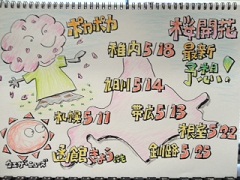 ポカポカ
桜開花
最新
予想!
稚内5/18
旭川5/14
札幌5/11
帯広5/13
根室5/22
函館きょう
釧路5/25